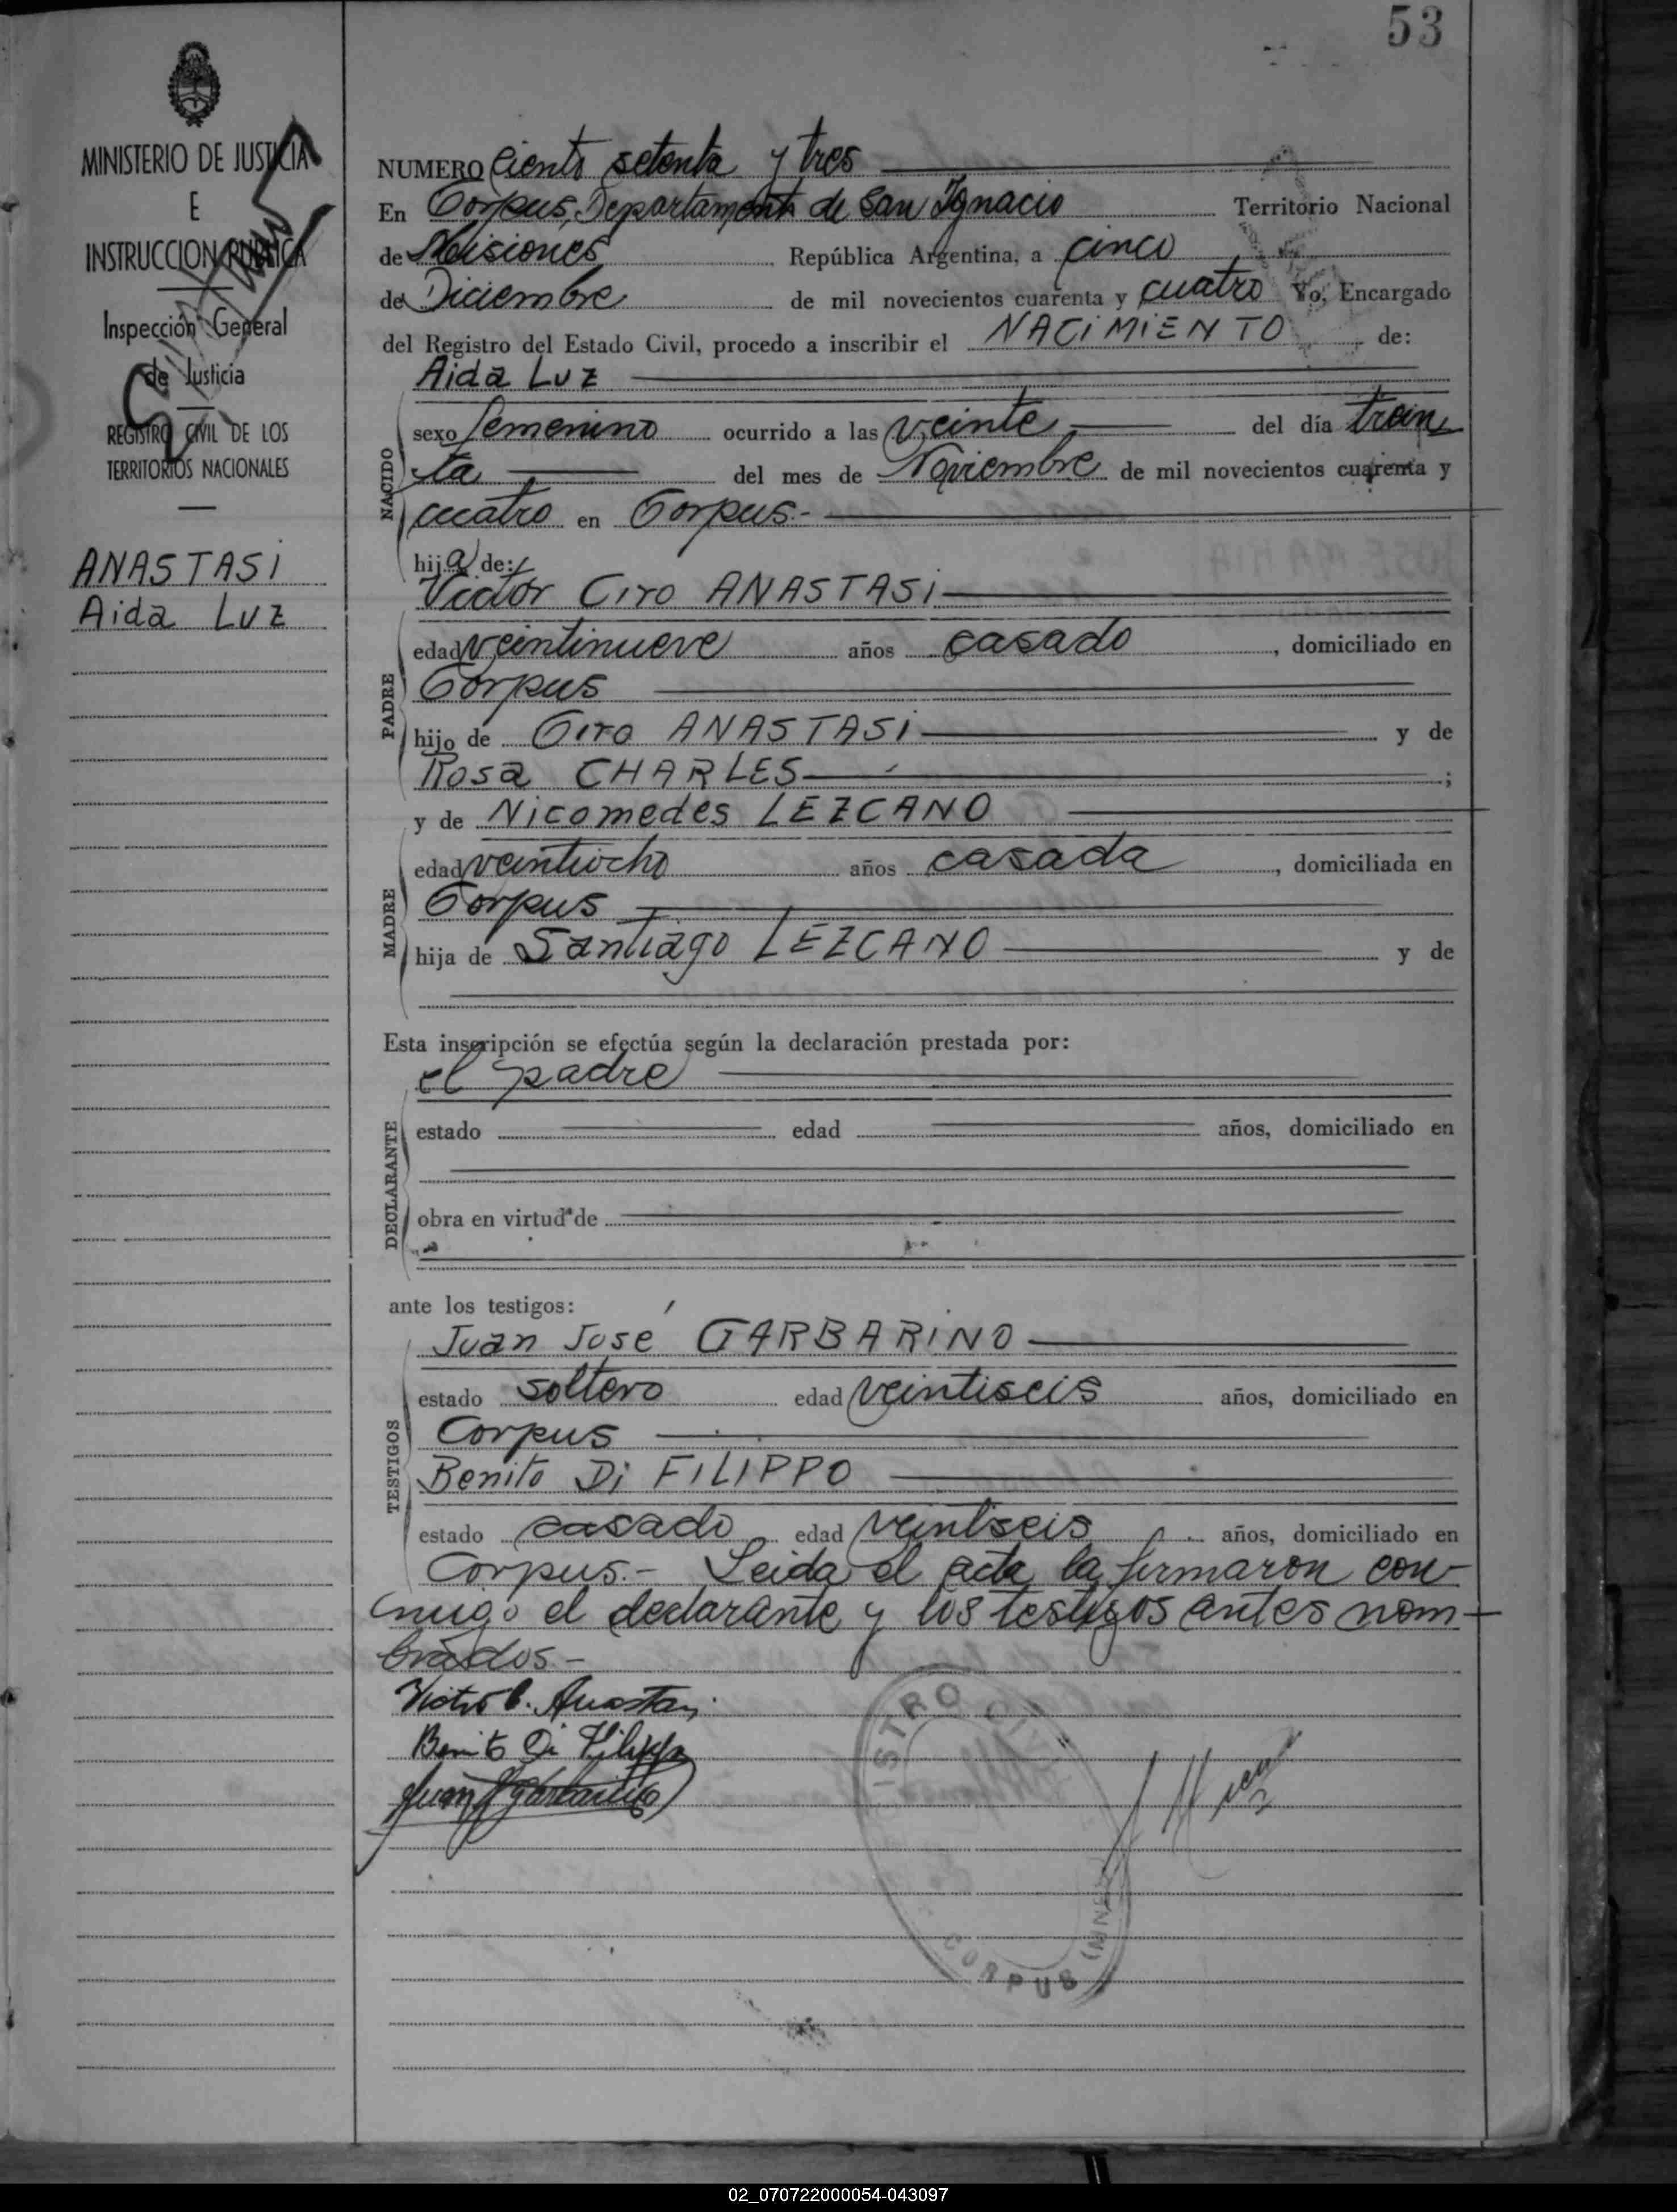 53
MINISTERIO DE JUSTICIA
E
INSTRUCCION PUBLICA
Inspección General
de Justicia
REGISTRO CIVIL DE LOS
TERRITORIOS NACIONALES
ANASTASI
Aida Luz
NUMERO Ciento setenta y tres
En Corpus, Departamento de San Ignacio Territorio Nacional
de Misiones República Argentina, a cinco
de Diciembre de mil novecientos cuarenta y cuatro Yo, Encargado
del Registro del Estado Civil, procedo a inscribir el NACIMIENTO de:
Aida Luz
NACIDO
sexo femenino ocurrido a las veinte del día trein
ta del mes de Noviembre de mil novecientos cuarenta y
cuatro en Corpus.-
hija de:
Victor Ciro ANASTASI
PADRE
edad veintinueve años casado, domiciliado en
Corpus
hijo de Ciro ANASTASI y de
Rosa CHARLES;
y de Nicomedes LEZCANO
MADRE
edad veintiocho años casada, domiciliada en
Corpus
hija de Santiago LEZCANO y de
Esta inscripción se efectúa según la declaración prestada por:
el padre
DECLARANTE
estado edad años, domiciliado en
obra en virtud de
ante los testigos:
Juan José GARBARINO
TESTIGOS
estado soltero edad veintiseis años, domiciliado en
Corpus
Benito Di FILIPPO
estado casado edad veintiseis años, domiciliado en
Corpus.- Leida el acta la firmaron con-
migo el declarante y los testigos antes nom-
brados-
Victor C. Anastasi
Benito Di Filippo
Juan J Garbarino
ISTRO CI
CORPUS (MNES)
02_070722000054-043097